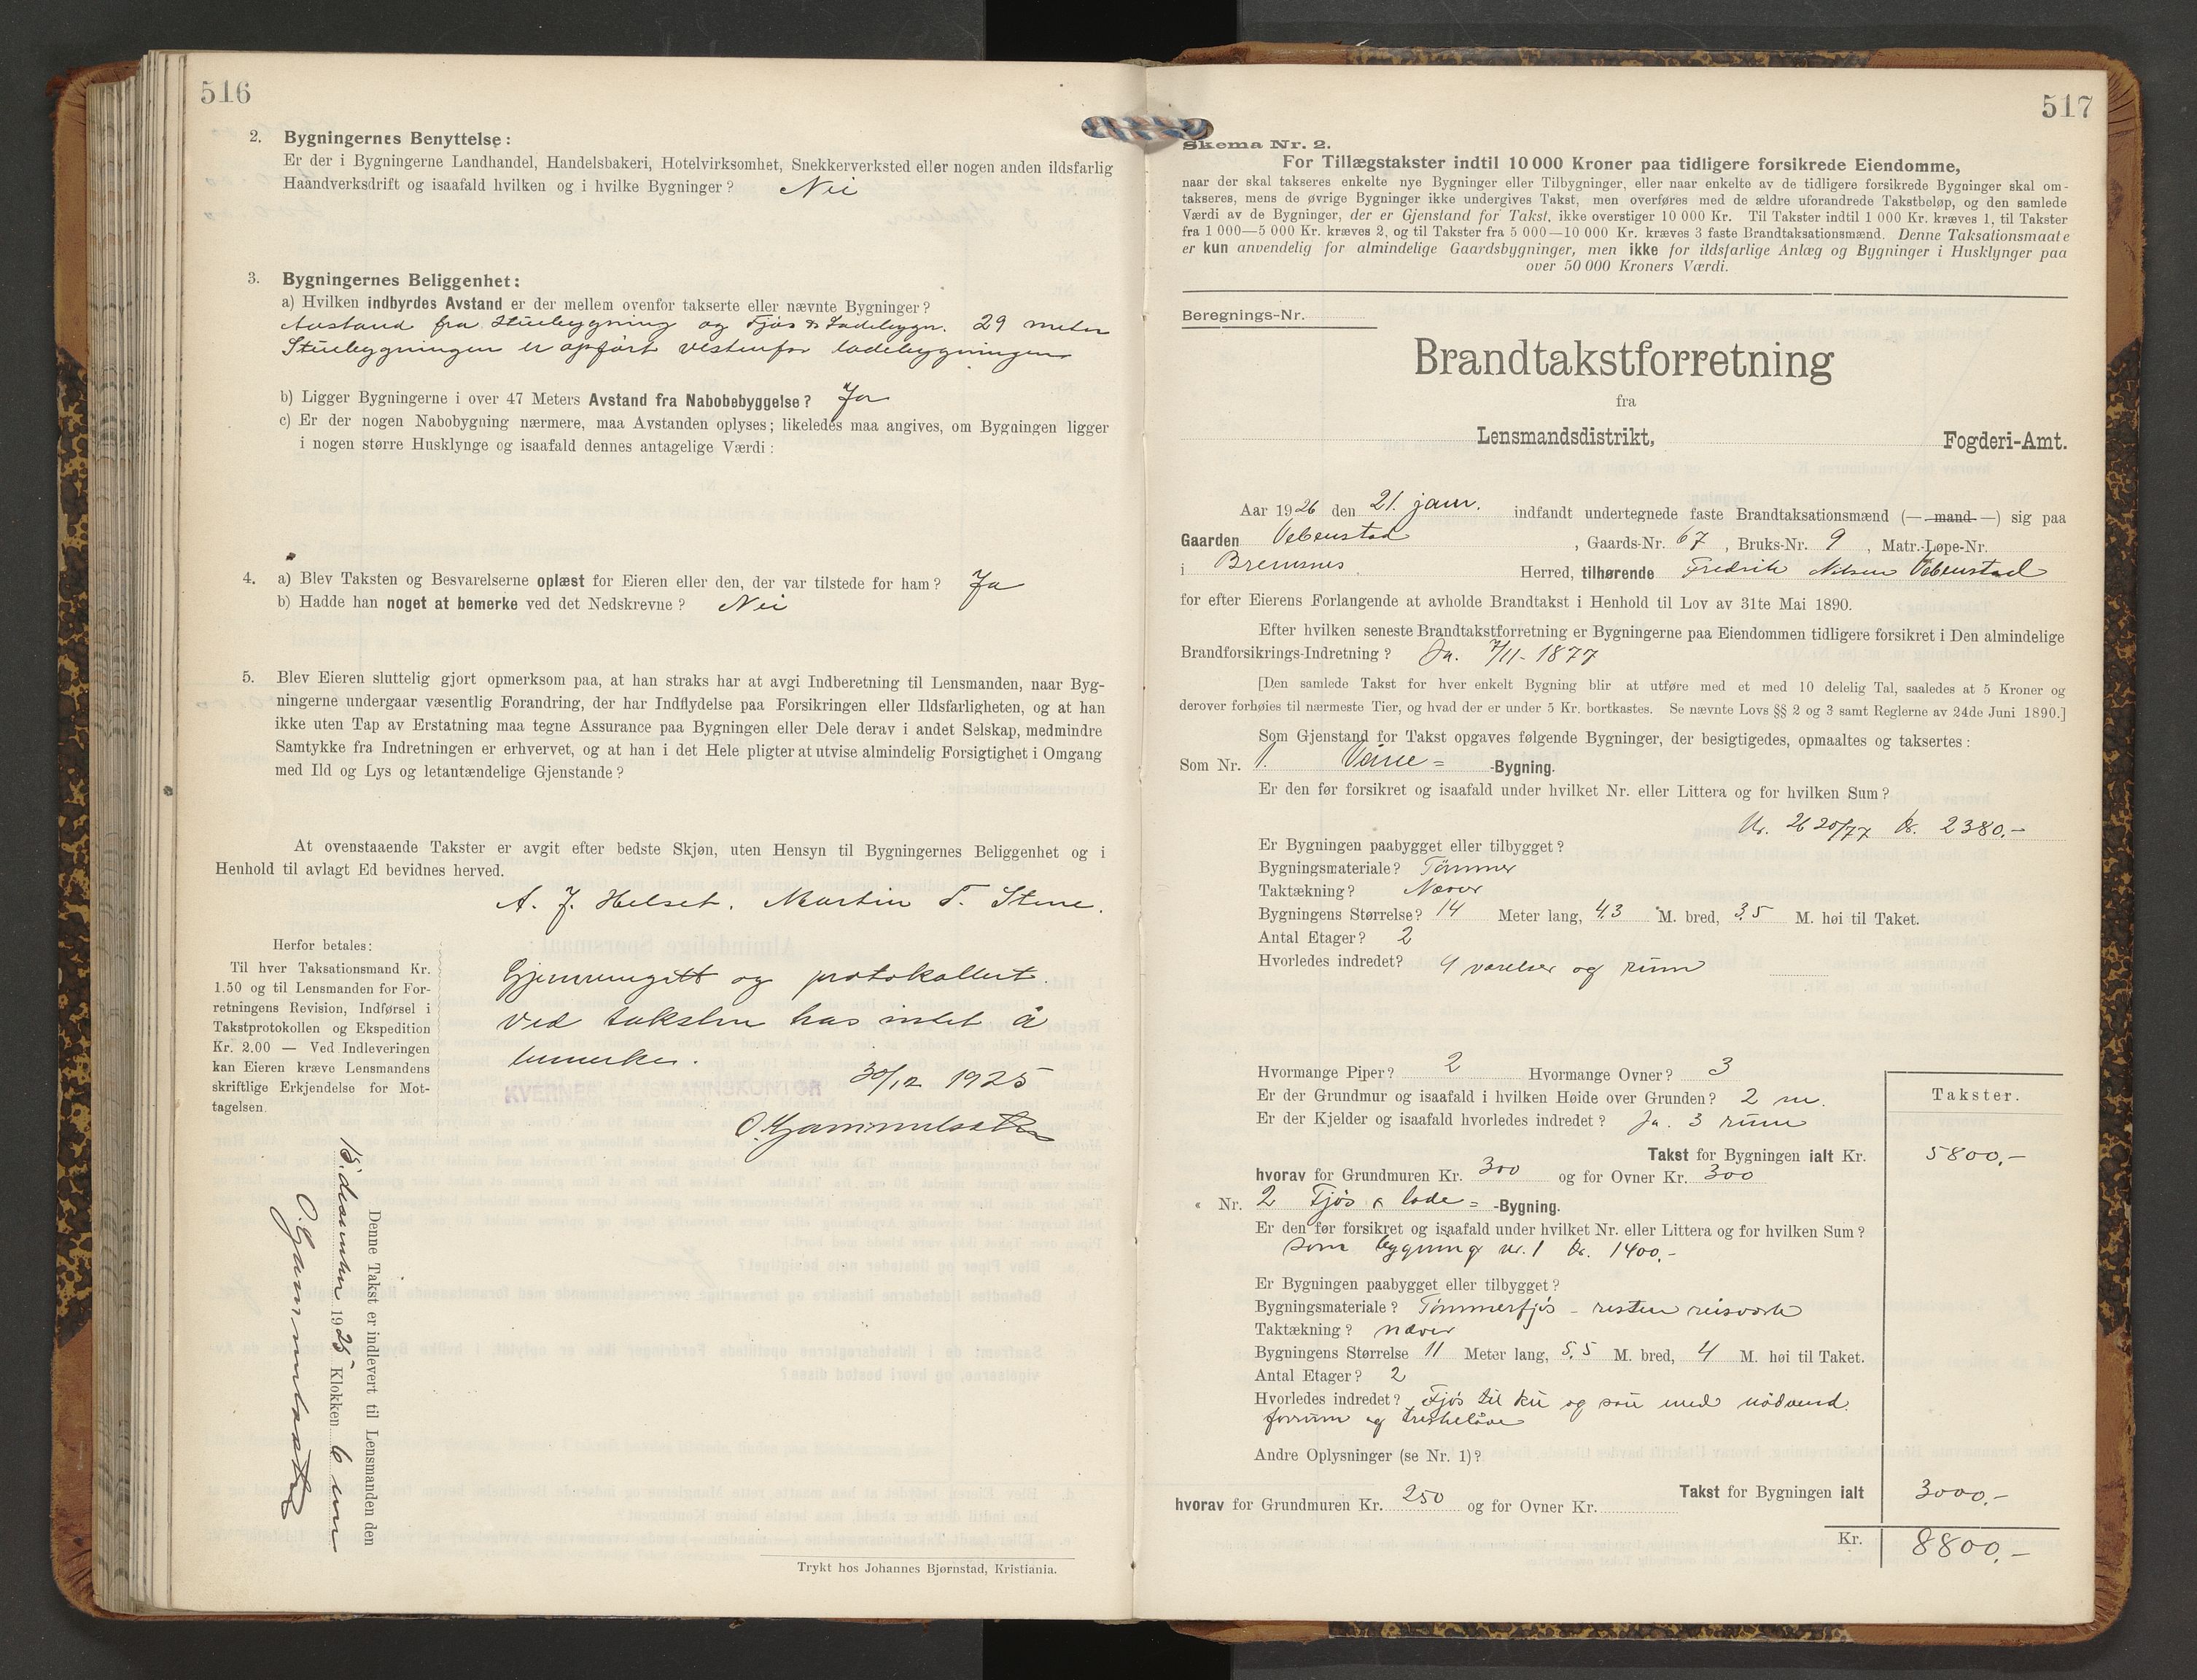 516
2. Bygningernes Benyttelse:
Er der i Bygningerne Landhandel, Handelsbakeri, Hotelvirksomhet, Snekkerverksted eller nogen anden ildsfarlig
Haandverksdrift og isaafald hvilken og i hvilke Bygninger? Nei
3. Bygningernes Beliggenhet:
a) Hvilken indbyrdes Avstand er der mellem ovenfor takserte eller nævnte Bygninger?
Avstand fra Stuebygning og Fjøs & Ladebygn. 29 meter
Stuebygningen er opført vestenfor ladebygningen
b) Ligger Bygningerne i over 47 Meters Avstand fra Nabobebyggelse? Ja
c) Er der nogen Nabobygning nærmere, maa Avstanden oplyses; likeledes maa angives, om Bygningen ligger
i nogen større Husklynge og isaafald dennes antagelige Værdi:
4. a) Blev Taksten og Besvarelserne oplæst for Eieren eller den, der var tilstede for ham? Ja
b) Hadde han noget at bemerke ved det Nedskrevne? Nei
5. Blev Eieren sluttelig gjort opmerksom paa, at han straks har at avgi Indberetning til Lensmanden, naar Byg-
ningerne undergaar væsentlig Forandring, der har Indflydelse paa Forsikringen eller Ildsfarligheten, og at han
ikke uten Tap av Erstatning maa tegne Assurance paa Bygningen eller Dele derav i andet Selskap, medmindre
Samtykke fra Indretningen er erhvervet, og at han i det Hele pligter at utvise almindelig Forsigtighet i Omgang
med Ild og Lys og letantændelige Gjenstande?
At ovenstaaende Takster er avgit efter bedste Skjøn, uten Hensyn til Bygningernes Beliggenhet og i
Henhold til avlagt Ed bevidnes herved.
A. J. Helset. Martin T. Stene.
Herfor betales:
Til hver Taksationsmand Kr.
1.50 og til Lensmanden for For-
retningens Revision, Indførsel i
Takstprotokollen og Ekspedition
Kr. 2.00 — Ved Indleveringen
kan Eieren kræve Lensmandens
skriftlige Erkjendelse for Mot-
tagelsen.
Gjennemgått og protokollert.
Ved taksten has intet å
bemerke.
30/12 1925
KVERNES LENSMANNSKONTOR
O. Gammelsæter
Denne Takst er indlevert til Lensmanden den
15. desember 1925 Klokken 6 em
O. Gammelsæter
Trykt hos Johannes Bjørnstad, Kristiania.
517
Skema Nr. 2.
For Tillægstakster indtil 10 000 Kroner paa tidligere forsikrede Eiendomme,
naar der skal takseres enkelte nye Bygninger eller Tilbygninger, eller naar enkelte av de tidligere forsikrede Bygninger skal om-
takseres, mens de øvrige Bygninger ikke undergives Takst, men overføres med de ældre uforandrede Takstbeløp, og den samlede
Værdi av de Bygninger, der er Gjenstand for Takst, ikke overstiger 10 000 Kr. Til Takster indtil 1 000 Kr. kræves 1, til Takster
fra 1 000—5 000 Kr. kræves 2, og til Takster fra 5 000—10 000 Kr. kræves 3 faste Brandtaksationsmænd. Denne Taksationsmaate
er kun anvendelig for almindelige Gaardsbygninger, men ikke for ildsfarlige Anlæg og Bygninger i Husklynger paa
over 50 000 Kroners Værdi.
Beregnings-Nr.
Brandtakstforretning
fra
Lensmandsdistrikt, Fogderi-Amt.
Aar 1926 den 21. jan. indfandt undertegnede faste Brandtaksationsmænd (— mand —) sig paa
Gaarden Vebenstad, Gaards-Nr. 67, Bruks-Nr. 9, Matr.-Løpe-Nr.
i Bremsnes Herred, tilhørende Fredrik Nilsen Vebenstad
for efter Eierens Forlangende at avholde Brandtakst i Henhold til Lov av 31te Mai 1890.
Efter hvilken seneste Brandtakstforretning er Bygningerne paa Eiendommen tidligere forsikret i Den almindelige
Brandforsikrings-Indretning? Ja. 7/11-1877
[Den samlede Takst for hver enkelt Bygning blir at utføre med et med 10 delelig Tal, saaledes at 5 Kroner og
derover forhøies til nærmeste Tier, og hvad der er under 5 Kr. bortkastes. Se nævnte Lovs §§ 2 og 3 samt Reglerne av 24de Juni 1890.]
Som Gjenstand for Takst opgaves følgende Bygninger, der besigtigedes, opmaaltes og taksertes:
Som Nr. 1. Våne= -Bygning.
Er den før forsikret og isaafald under hvilket Nr. eller Littera og for hvilken Sum?
Nr. 2620/77 kr. 2380,-
Er Bygningen paabygget eller tilbygget?
Bygningsmateriale? Tømmer
Taktækning? Never
Bygningens Størrelse? 14 Meter lang, 4,3 M. bred, 3,5 M. høi til Taket.
Antal Etager? 2
Hvorledes indredet? 4 værelser og rum
Hvormange Piper? 2 Hvormange Ovner? 3
Er der Grundmur og isaafald i hvilken Høide over Grunden? 2 m.
Er der Kjelder og isaafald hvorledes indredet? Ja. 3 rum
Takster.
Takst for Bygningen ialt Kr. 5800,-
hvorav for Grundmuren Kr. 300 og for Ovner Kr. 300
« Nr. 2 Fjøs & lade= -Bygning.
Er den før forsikret og isaafald under hvilket Nr. eller Littera og for hvilken Sum?
som bygning nr. 1 kr. 1400,-
Er Bygningen paabygget eller tilbygget?
Bygningsmateriale? Tømmerfjøs - resten reisverk
Taktækning? never
Bygningens Størrelse 11 Meter lang, 5,5 M. bred, 4 M. høi til Taket.
Antal Etager? 2
Hvorledes indredet? Fjøs til ku og sau med nødvend.
forrum og treskelåve
Andre Oplysninger (se Nr. 1)?
Takst for Bygningen ialt 3000,-
hvorav for Grundmuren Kr. 250 og for Ovner Kr.
Kr. 8800,-